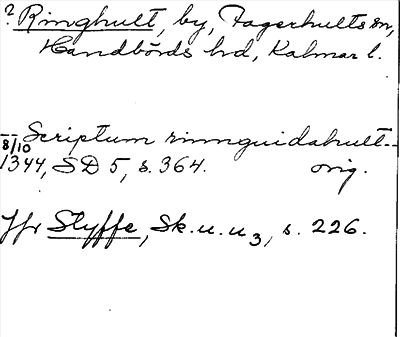 ? Ringhult, by, Fagerhults sn,
Handbörds hd, Kalmar l.
-- Scriptum rinnguidahult--
8/10
1344, SD 5, s. 364. orig.
Jfr Styffe, Sk. u. u 3, s. 226.